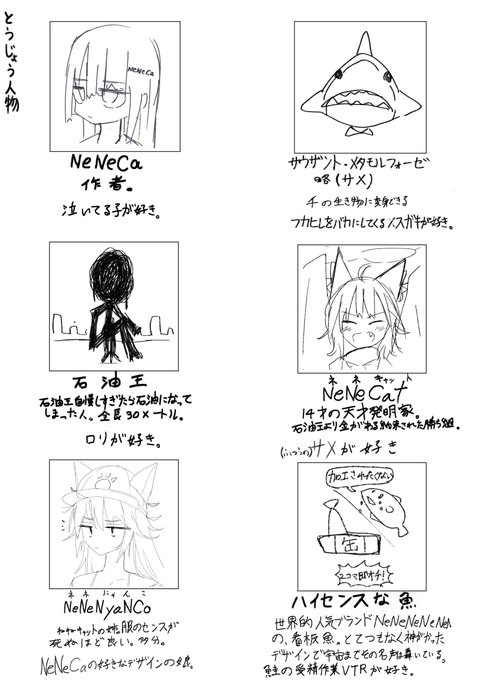 とうじょう人物
NeNeCa
NeNeCa
作者。
泣いてる子が好き。
サウザント・メタモルフォーゼ
略(サメ)
千の生き物に変身できる
フカヒレをバカにしてくるメスガキが好き。
石油王
石油王自慢しすぎたら石油になって
しまった人。全長30メートル。
ロリが好き。
ネネキャット
NeNeCat
14才の天才発明家。
石油王より金がある約束された勝ち組。
(ふつうの)サメが好き
ネネにゃんこ
NeNeNyaNCo
ネネキャットの娘。服のセンスが
死ぬほど良い。
NeNeCaの好きなデザインの娘。
加工されたくない
缶
2コマ即オチ!
ハイセンスな魚
世界的人気ブランドNeNeNeNeNeN
の、看板魚。とてつもなく神がかった
デザインで宇宙までその名声は轟いている。
鮭の受精作業VTRが好き。